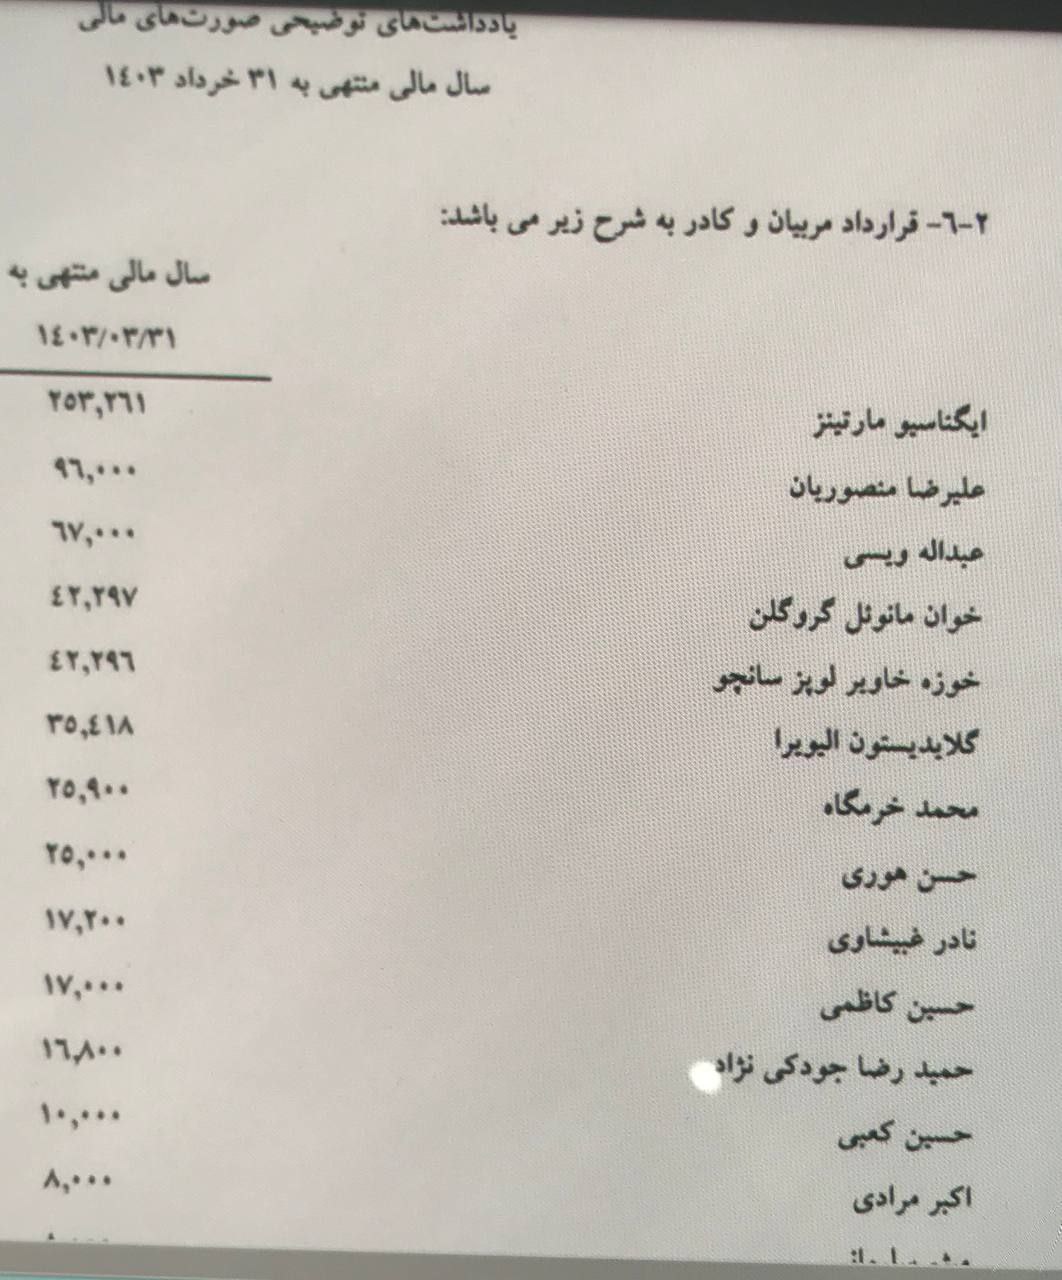 یادداشت‌های توضیحی صورت‌های مالی
سال مالی منتهی به ۳۱ خرداد ۱٤۰۳
۲-٦- قرارداد مربیان و کادر به شرح زیر می باشد:
سال مالی منتهی به
۱٤۰۳/۰۳/۳۱
ایگناسیو مارتینز ۲٥۳,۲٦۱
علیرضا منصوریان ۹٦,۰۰۰
عبداله ویسی ٦۷,۰۰۰
خوان مانوئل گروگلن ٤۲,۲۹۷
خوزه خاویر لوپز سانچو ٤۲,۲۹٦
گلایدیستون الیویرا ۳٥,٤۱۸
محمد خرمگاه ۲٥,۹۰۰
حسن هوری ۲٥,۰۰۰
نادر غبیشاوی ۱۷,۲۰۰
حسین کاظمی ۱۷,۰۰۰
حمید رضا جودکی نژاد ۱٦,۸۰۰
حسین کعبی ۱۰,۰۰۰
اکبر مرادی ۸,۰۰۰